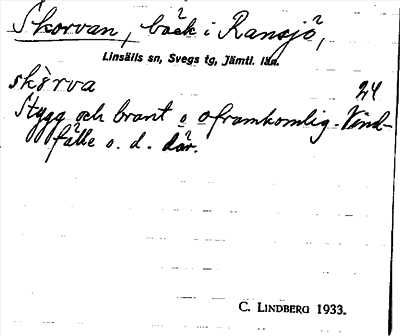 Skorvan, bäck i Ransjö,
Linsälls sn, Svegs tg, Jämtl. län.
skòrva 24
Stygg och brant o oframkomlig. Vind-
fälle o. d. där.
C. LINDBERG 1933.